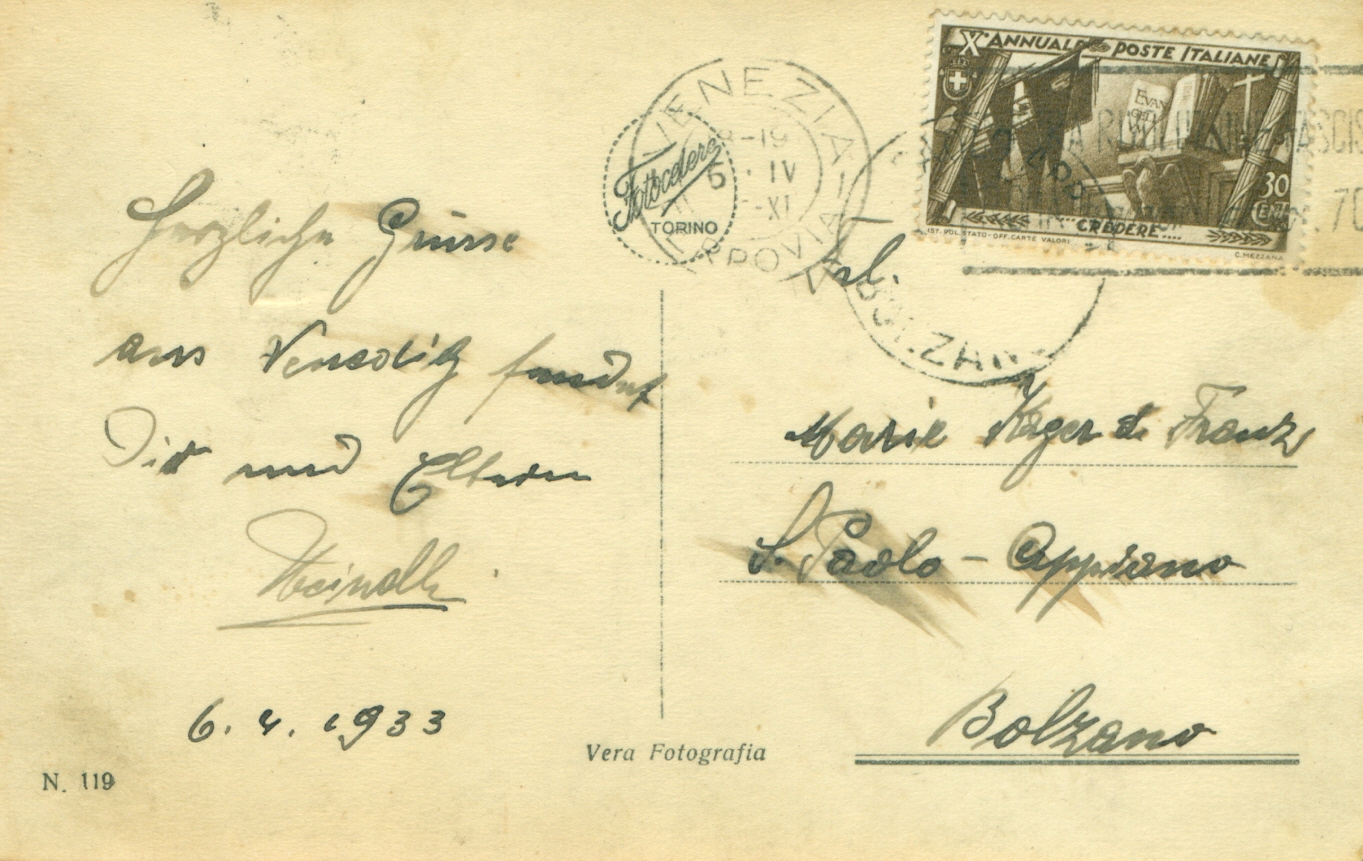 Xº ANNUALE POSTE ITALIANE
EVAN
30
CENT
CREDERE....
IST. POL. STATO-OFF. CARTE VALORI
C. MEZZANA
VENEZIA
FERROVIA
-19
6 · IV
-XI
Fotocelere
TORINO
BOLZANO
Herzliche Grüsse
aus Venedig sendet
Dir und Eltern
6. 4. 1933
Frl.
Marie Kager d. Franz
S. Paolo - Appiano
Bolzano
Vera Fotografia
N. 119